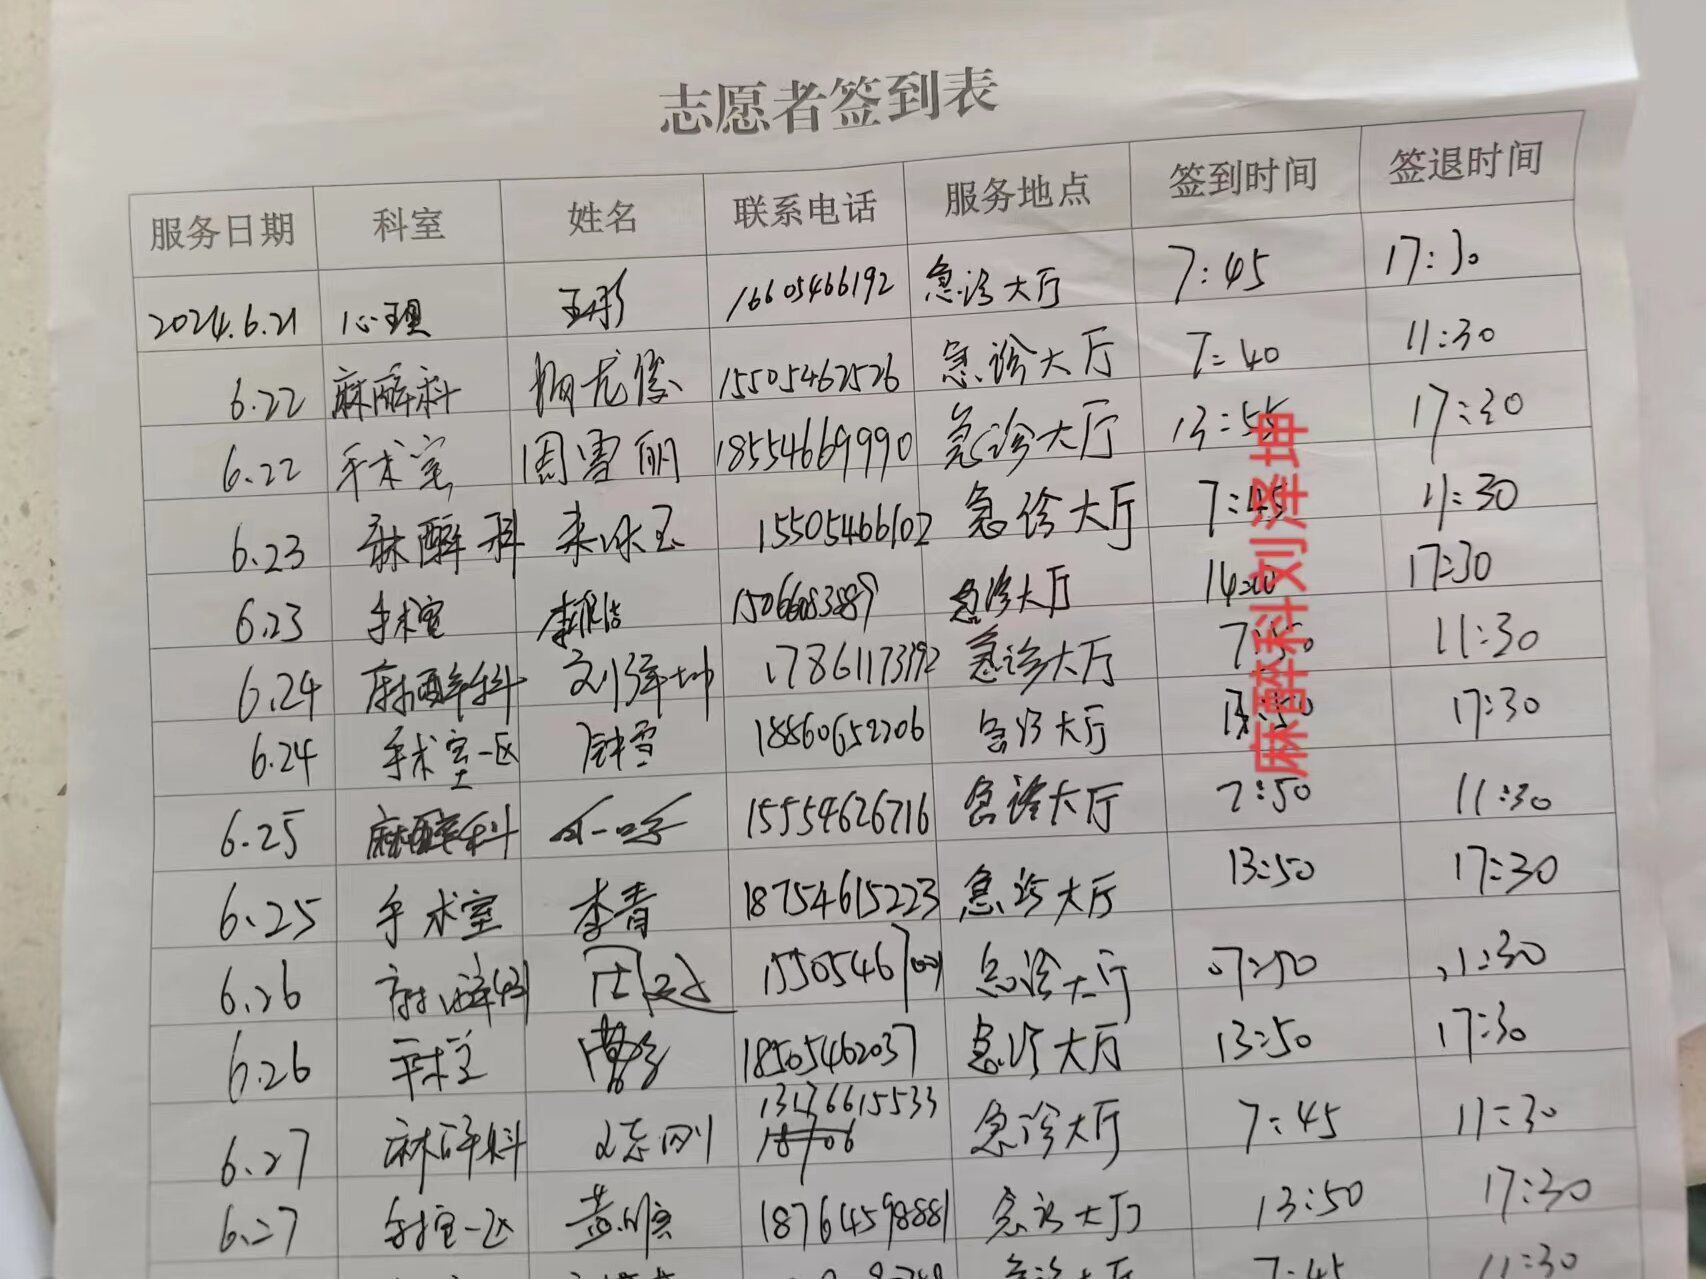 志愿者签到表
服务日期 科室 姓名 联系电话 服务地点 签到时间 签退时间
2024.6.21 心理 王彤 16605466192 急诊大厅 7:45 17:30
6.22 麻醉科 15505462526 急诊大厅 7:40 11:30
6.22 手术室 周雪丽 18554669990 急诊大厅 13:55 17:30
6.23 麻醉科 15505466102 急诊大厅 7:45 11:30
6.23 手术室 急诊大厅 17:30
6.24 麻醉科 刘泽坤 17861173192 急诊大厅 7:50 11:30
6.24 手术室一区 18860652206 急诊大厅 13:50 17:30
6.25 麻醉科 15554626716 急诊大厅 7:50 11:30
6.25 手术室 李青 18754615223 急诊大厅 13:50 17:30
6.26 麻醉科 急诊大厅 07:50 11:30
6.26 手术室 18505462037 急诊大厅 13:50 17:30
6.27 麻醉科 急诊大厅 7:45 11:30
6.27 手术室一区 18764598881 急诊大厅 13:50 17:30
7:45 11:30
麻醉科刘泽坤